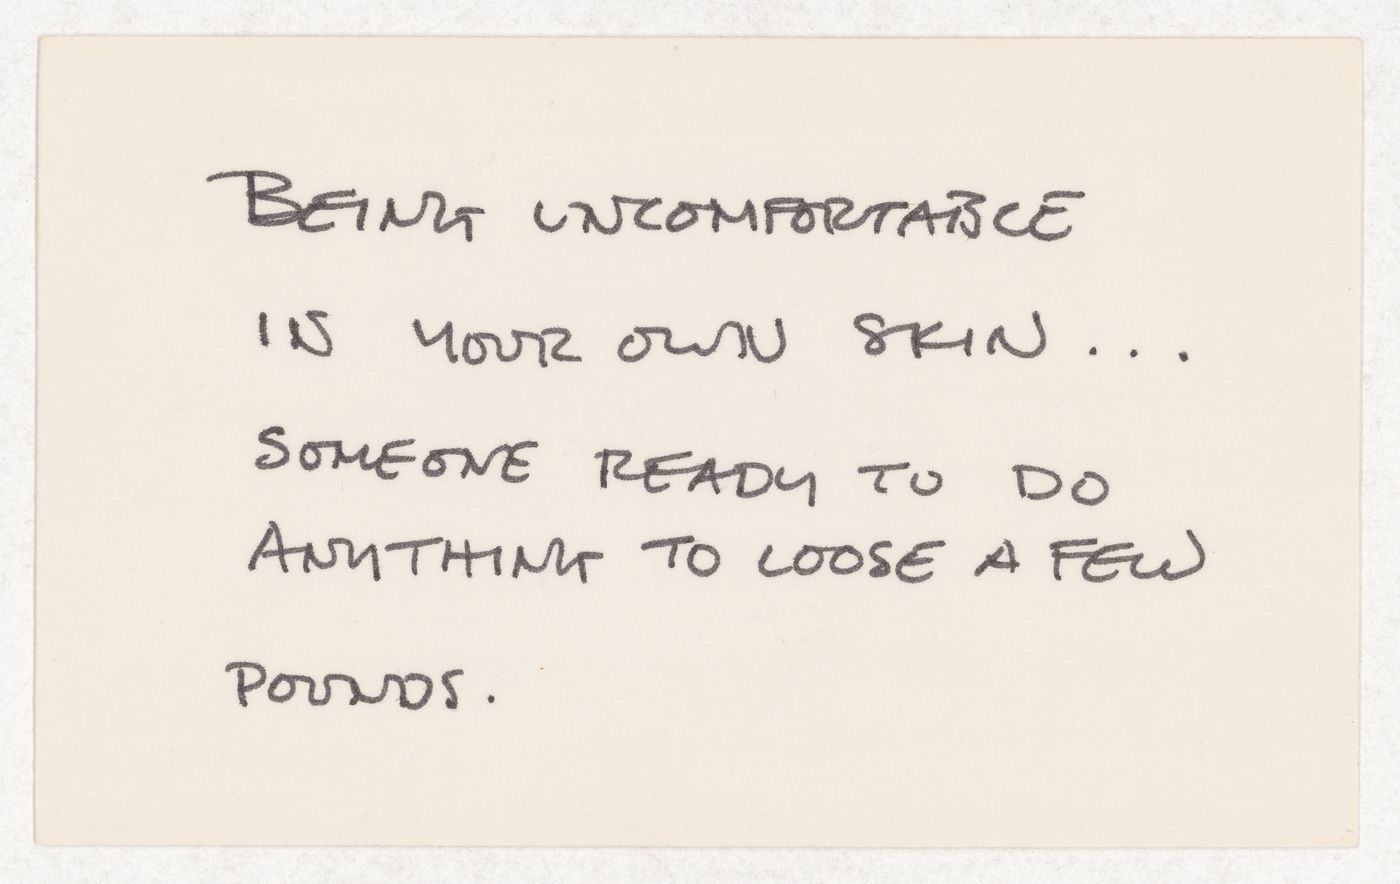 BEING UNCOMFORTABLE
IN YOUR OWN SKIN...
SOMEONE READY TO DO
ANYTHING TO LOOSE A FEW
POUNDS.